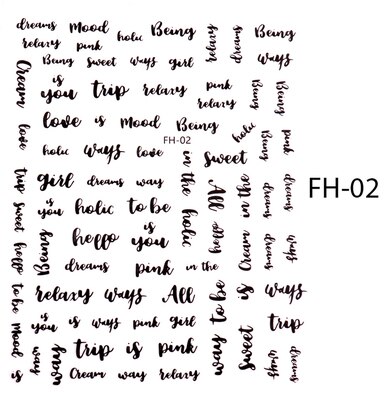 dreams mood holic Being relaxy dreams Being
relaxy pink
Being sweet ways girl ways
Cream is you trip relaxy pink Being Being
relaxy
love love is mood Being holic Being pink
FH-02
holic ways love in the holic sweet
trip girl dreams way All Cream in the dreams dreams
FH-02
sweet is you holic to be
heffo heffo is you dreams ways
Being dreams pink in the
to be relaxy ways All way to be is ways
mood is you is ways pink girl sweet trip
is way ways trip is pink ways dreams
Cream way relaxy